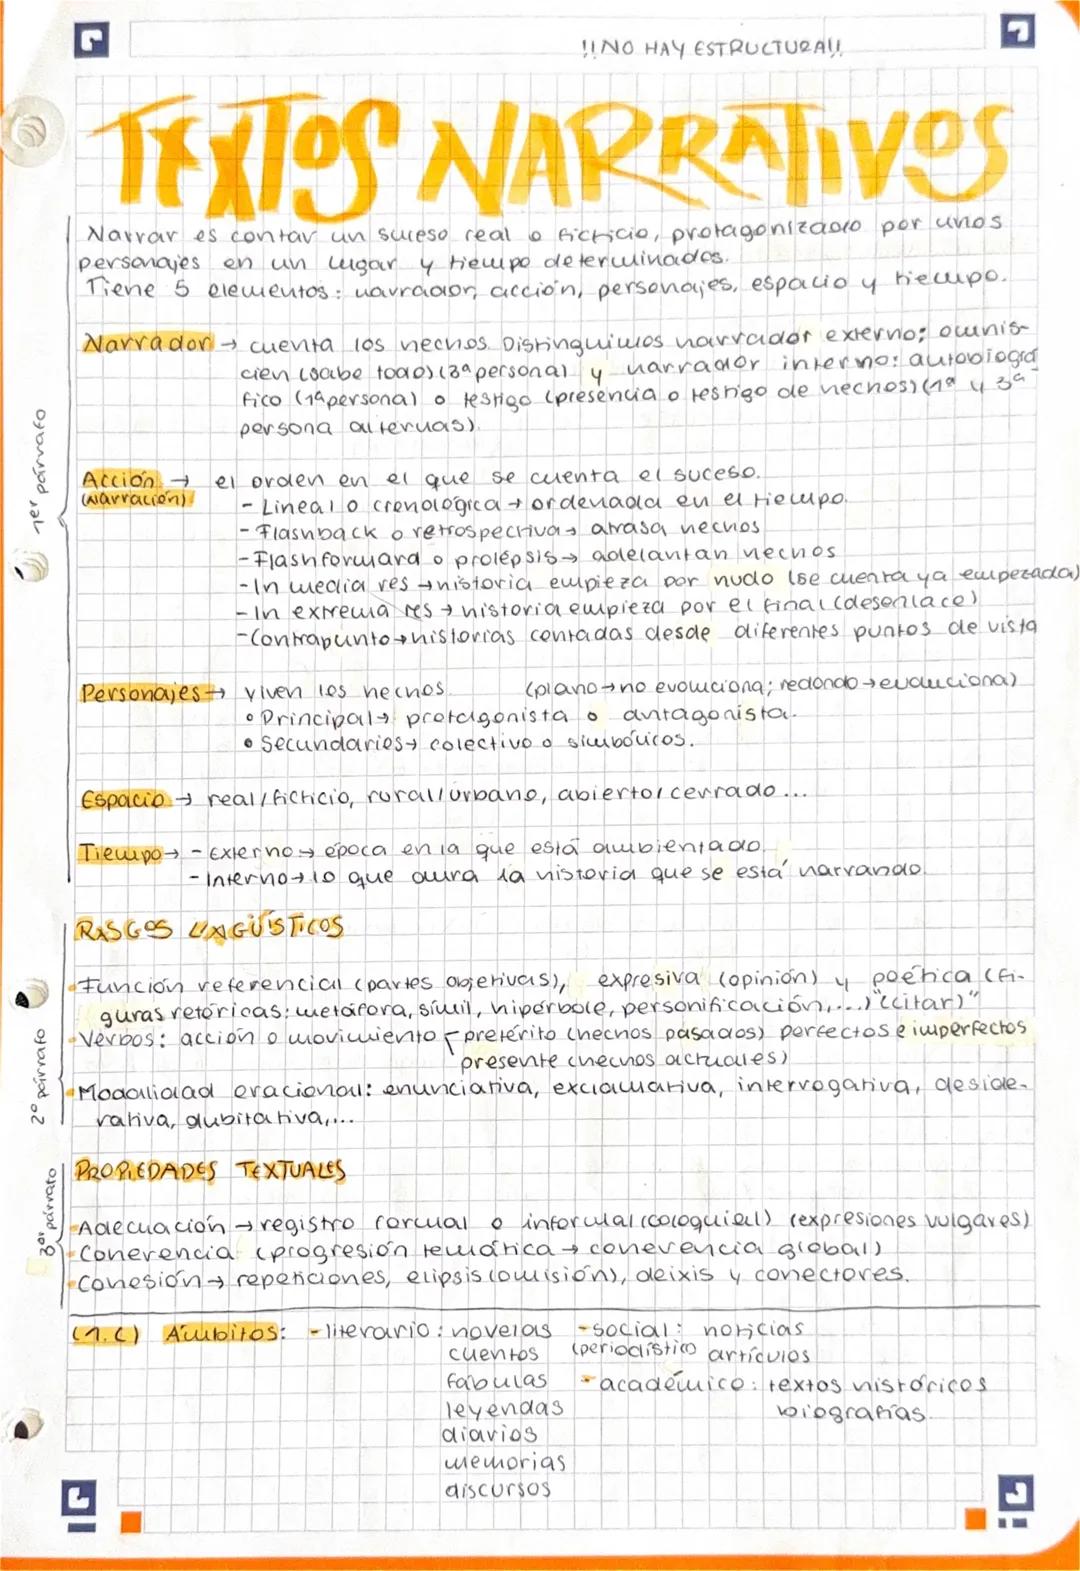 !!NO HAY ESTRUCTURA!!
TEXTOS NARRATIVOS
Narrar es contar un suceso real o ficticio, protagonizado por unos
personajes en un lugar y tiempo determinados.
Tiene 5 elementos: narrador, acción, personajes, espacio y tiempo.
Narrador → cuenta los hechos. Distinguimos narrador externo: omnis-
cien (sabe todo) (3ª persona) y narrador interno: autobiográ
fico (1ª persona) o testigo (presencia o testigo de hechos) (1ª y 3ª
persona alternas).
1er párrafo
Acción → el orden en el que se cuenta el suceso.
(narración)
- Lineal o cronológica → ordenada en el tiempo.
- Flashback o retrospectiva → atrasa hechos
- Flashforward o prolépsis → adelantan hechos
- In media res → historia empieza por nudo (se cuenta ya empezada)
- In extrema res → historia empieza por el final (desenlace)
- Contrapunto → historias contadas desde diferentes puntos de vista
Personajes → viven los hechos. (plano → no evoluciona; redondo → evoluciona)
• Principal → protagonista o antagonista.
• Secundarios → colectivo o simbólicos.
Espacio → real/ficticio, rural/urbano, abierto/cerrado...
Tiempo → - Externo → época en la que está ambientado.
- Interno → lo que dura la historia que se está narrando.
RASGOS LINGÜÍSTICOS
2º párrafo
• Función referencial (partes objetivas), expresiva (opinión) y poética (fi-
guras retóricas: metáfora, símil, hipérbole, personificación,...) "(citar)"
• Verbos: acción o movimiento pretérito (hechos pasados) perfectos e imperfectos
presente (hechos actuales)
• Modalidad oracional: enunciativa, exclamativa, interrogativa, deside-
rativa, dubitativa,...
PROPIEDADES TEXTUALES
3er párrafo
• Adecuación → registro formal o informal (coloquial) (expresiones vulgares)
• Coherencia (progresión temática → coherencia global)
• Cohesión → repeticiones, elipsis (omisión), deixis y conectores.
(1.c) Ámbitos: - literario: novelas - social: noticias
cuentos (periodístico artículos
fábulas - académico: textos históricos
leyendas biografías.
diarios
memorias
discursos